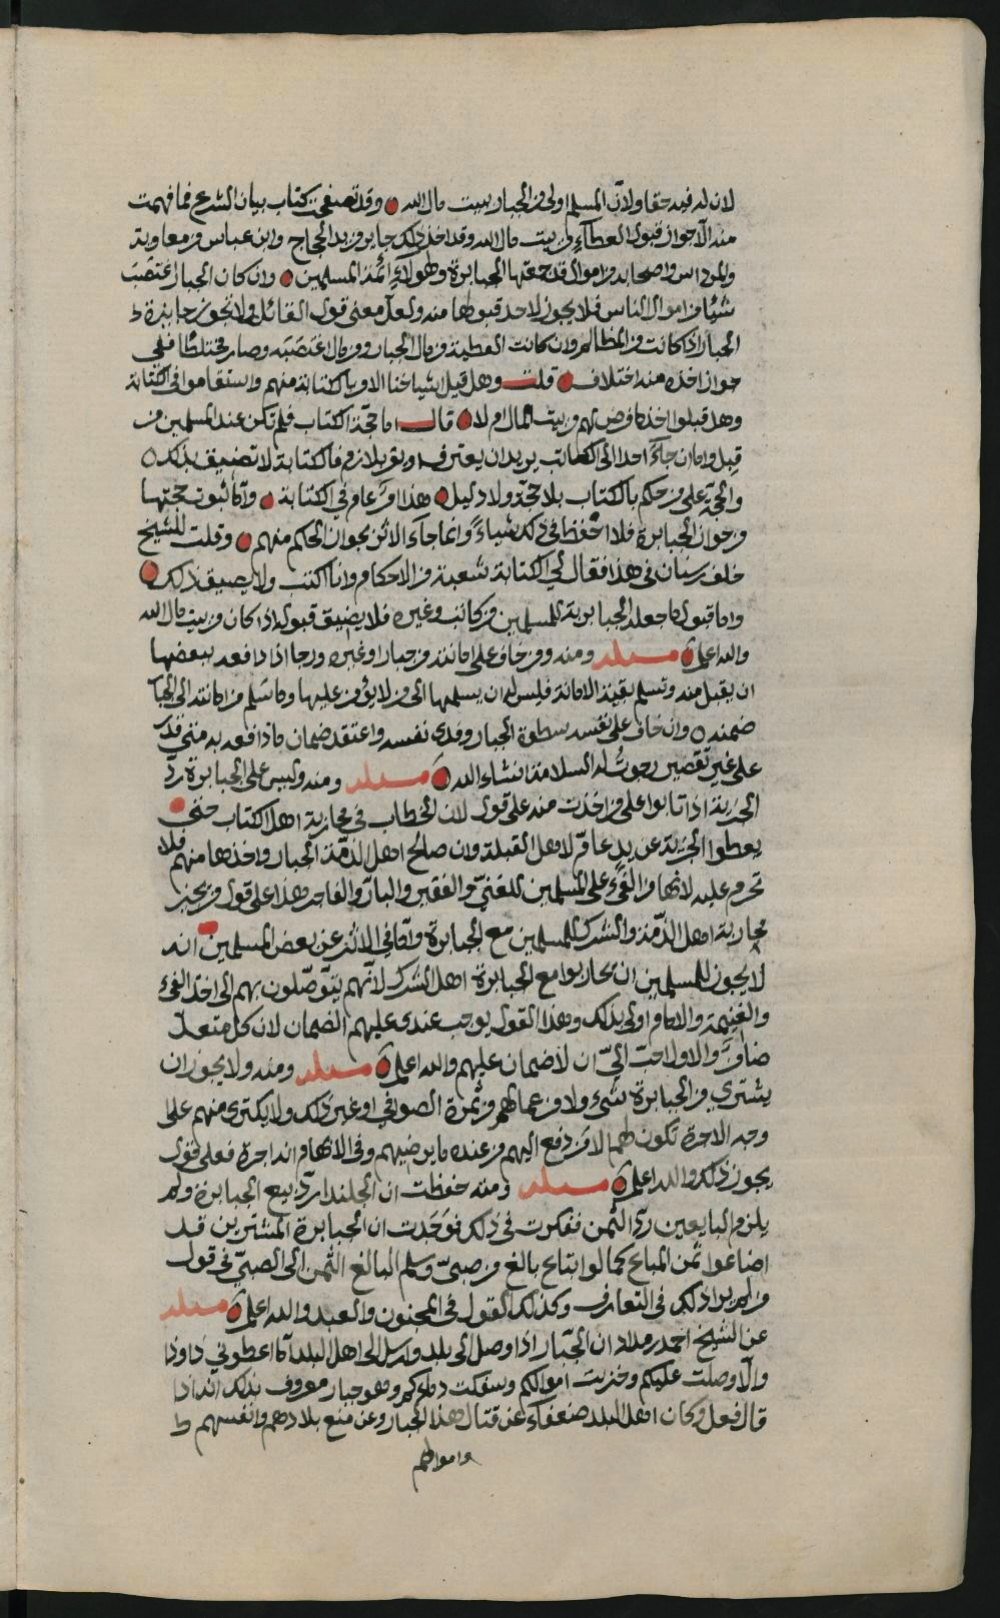 لان له فيه حقا ولانّ المسلم اولى من الجبار ببيت مال الله وقد تصفحت كتاب بيان الشرع فما فهمت
منه الّا جواز قبول العطآء من بيت مال الله وقد اخذ ذلك جابر بن زيد الحجاج وابن عباس من معاوية
والمرداس واصحابه من اموال قد جمعتها الجبابرة وهولآء ائمّة المسلمين وان كان الجبار اغتصب
شيًا من اموال الناس فلا يجوز لاحد قبولها منه ولعل معنى قول القائل ولا تجوز جايزة
الجبار اذا كانت من المظالم وان كانت العطية من مال الجبار ومن مال اغتصبه وصار مختلطا ففي
جواز اخذه منه اختلاف قلت وهل قيل اشياخنا الاو بالكتابة منهم واستقاموا في الكتابة
وهل قبلوا اخذ ما فرض لهم من بيت المال ام لا قال اما حجة الكتاب فلم تكن عند المسلمين من
قبل واما ان جآء احد الى الكاتب يريد ان يعترف او يقر بلازم فالكتابة لا تضيق بذلك
والحجة على من حكم بالكتاب بلا حجة ولا دليل هذا امر عام في الكتابة وامّا ثبوت حجتها
من جواز الجبابرة فلا احفظ في ذلك شياء وانما جآء الاثر بجواز الحاكم منهم وقلت للشيخ
خلف بن سنان في هذا فقال لي الكتابة شعبة من الاحكام وانا اكتب ولا يضيق ذلك
واما قبول ما جعله الجبابرة للمسلمين من كاتب وغيره فلا يضيق قبوله اذا كان من بيت مال الله
والله اعلم مسئلة ومنه ومن خاف على امانته من جبار او غيره ورجا اذا دافعه ببعضها
ان يقبل منه وتسلم بقية الامانة فليس له ان يسلمها الى من لا يؤمن عليها وما سَلم من امانته الى الجبار
ضمنه وان خاف على نفسه سطوة الجبار وفدى نفسه واعتقد ضمان ما دافعه به متى قدر
على غير تقصير رجوتُ له السلامة انشاء الله مسئلة ومنه وليس على الجبابرة ردّ
الجزية اذا تابوا على من اخذت منه على قول لان الخطاب في محاربة اهل الكتاب حتى
يعطوا الجزية عن يدٍ عامّ لاهل القبلة وان صالح اهل الذمّة الجبار واخذها منهم فلا
تحرم عليه لانها من الفَيْ على المسلمين للغنيّ والفقير والبارّ والفاجر هذا على قول من يجيز
محاربة اهل الذمّة والشرك للمسلمين مع الجبابرة وامّا في الاثر عن بعض المسلمين انه
لا يجوز للمسلمين ان يحاربوا مع الجبابرة اهل الشرك لانّهم يتوصّلون بهم الى اخذ الفئ
والغنيمة والامام اولى بذلك وهذا القول يوجب عندي عليهم الضمان لان كل متعد
ضامن والاول احبّ اليّ ان لا ضمان عليهم والله اعلم مسئلة ومنه ولا يجوز ان
يشتري من الجبابرة شيء ولا من عمالهم من ثمرة الصوافي او غير ذلك ولا يكترى منهم على
وجه الاجرة تكون لهم الا من دفع اليهم من عنده ما يرضيهم وفي الانهام انه اجرة فعلى قول
يجوز ذلك والله اعلم مسئلة ومنه حفظت ان الجلندا ردّ بيع الجبابرة ولم
يلزم البايعين ردّ الثمن ففكرت في ذلك فوَجَدت ان الجبابرة المشترين قد
اضاعوا ثمن المباع كما لو ابتاع بالغ من صبيّ وسلم البالغ الثمن الى الصبيّ في قول
من لم ير اذلك في التعارف وكذلك القول في المجنون والعبد والله اعلم مسئلة
عن الشيخ احمد بن مداد ان الجبّار اذا وصل الى بلد وارسل الى اهل البلد امّا اعطوني ذا وذا
والّا وصلت عليكم وخربت اموالكم وسفكت دماءكم وهو جبار معروف بذلك انه اذا
قال فعل وكان اهل البلد ضعفآء عن قتال هذا الجبار وعن منع بلادهم وانفسهم
واموالهم